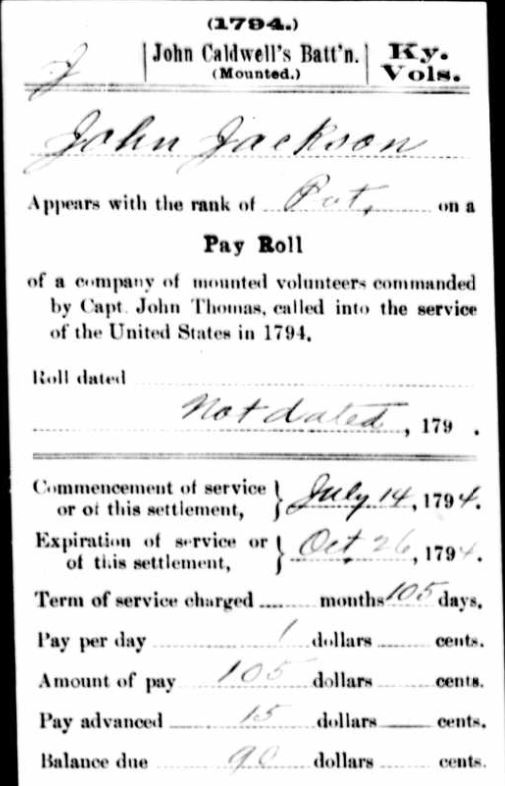 (1794.)
J | John Caldwell's Batt'n. | Ky.
(Mounted.) Vols.
John Jackson
Appears with the rank of Pvt, on a
Pay Roll
of a company of mounted volunteers commanded
by Capt. John Thomas, called into the service
of the United States in 1794.
Roll dated
Not dated, 179 .
Commencement of service
or of this settlement, } July 14, 1794.
Expiration of service or
of this settlement, } Oct, 26, 1794.
Term of service charged months 105 days.
Pay per day 1 dollars cents.
Amount of pay 105 dollars cents.
Pay advanced 15 dollars cents.
Balance due 90 dollars cents.